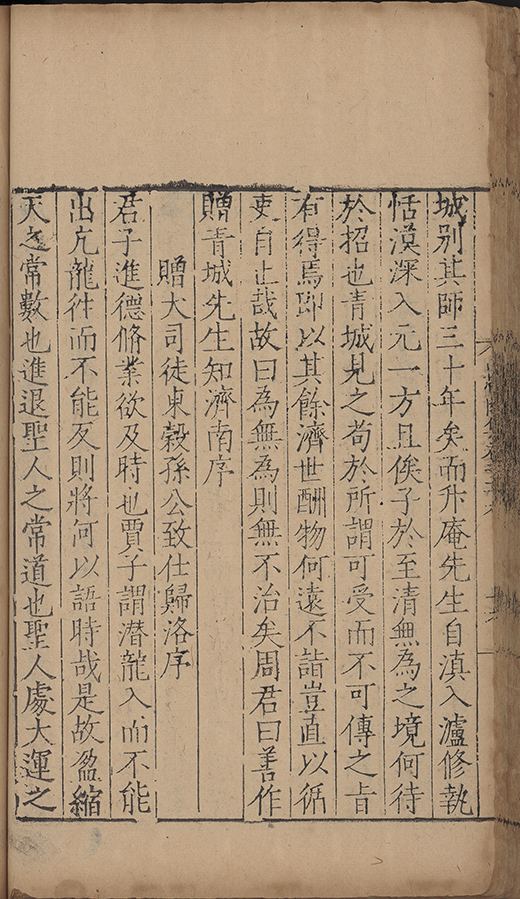 城别其師三十年矣而升庵先生自滇入瀘修執
恬漠深入元一方且俟子於至清無為之境何待
於招也青城見之苟於所謂可受而不可傳之旨
有得焉即以其餘濟世酬物何遠不詣豈直以循
吏自止哉故曰為無為則無不治矣周君曰善作
贈青城先生知濟南序
贈大司徒東穀孫公致仕歸洛序
君子進德脩業欲及時也賈子謂潜龍入而不能
出亢龍徃而不能反則將何以語時哉是故盈縮
天之常數也進退聖人之常道也聖人處大運之